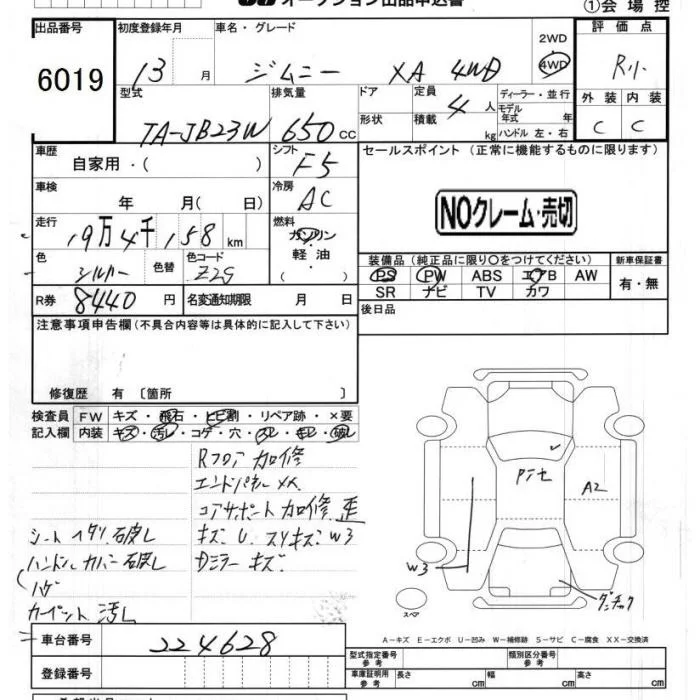 オークション出品申込書
①会場控
出品番号 初度登録年月 車名・グレード 2WD 4WD 評価点
6019 13 月 ジムニー XA 4WD R
型式 排気量 ドア 形状 定員 積載 4 人 kg ディーラー・並行 モデル年式 年 ハンドル 左・右 外装 内装
TA-JB23W 650 cc C C
車歴 自家用・( ) シフト F5 セールスポイント(正常に機能するものに限ります)
車検 年 月( 日) 冷房 AC NOクレーム・売切
走行 19万4千158 km 燃料 ガソリン
軽油
( )
色 シルバー 色替 色コード Z2S 装備品(純正品に限り○をつけてください) 新車保証書
PS PW ABS エアB AW 有・無
R券 8440 円 名変通知期限 月 日 SR ナビ TV カワ
注意事項申告欄(不具合内容等は具体的に記入して下さい) 後日品
修復歴 有〔箇所 〕
検査員 FW キズ・飛石・ヒビ割・リペア跡・×要
記入欄 内装 キズ・汚レ・コゲ・穴・スレ・キレ・破レ
Rフロア加修
エンドパネルXX
コアサポート加修 歪
シートヘタリ破レ キズ U スリキズ W3
ハンドルカバー破レ Dミラーキズ
ハゲ
カーペット汚レ
アンセ
A2
W3
ダンチック
スペア
A-キズ E-エクボ U-凹み W-補修跡 S-サビ C-腐食 XX-交換済
車台番号 224628
型式指定番号 参考 類別区分番号 参考
登録番号 車庫証明用 参考 長さ cm 幅 cm 高さ cm